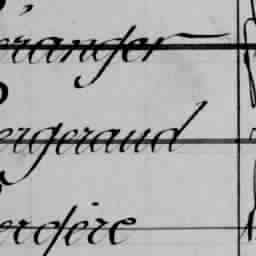 eranger
ergeraud
erdière